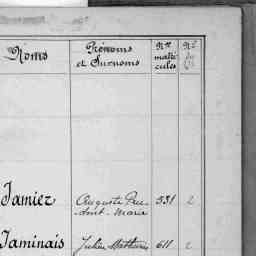 Noms
Prénoms
et Surnoms
Nos
matri
cules
Nos
Jamiez
Auguste Pru-
dent-Marie
531
2
Jaminais
Julien Mathurin
611
2